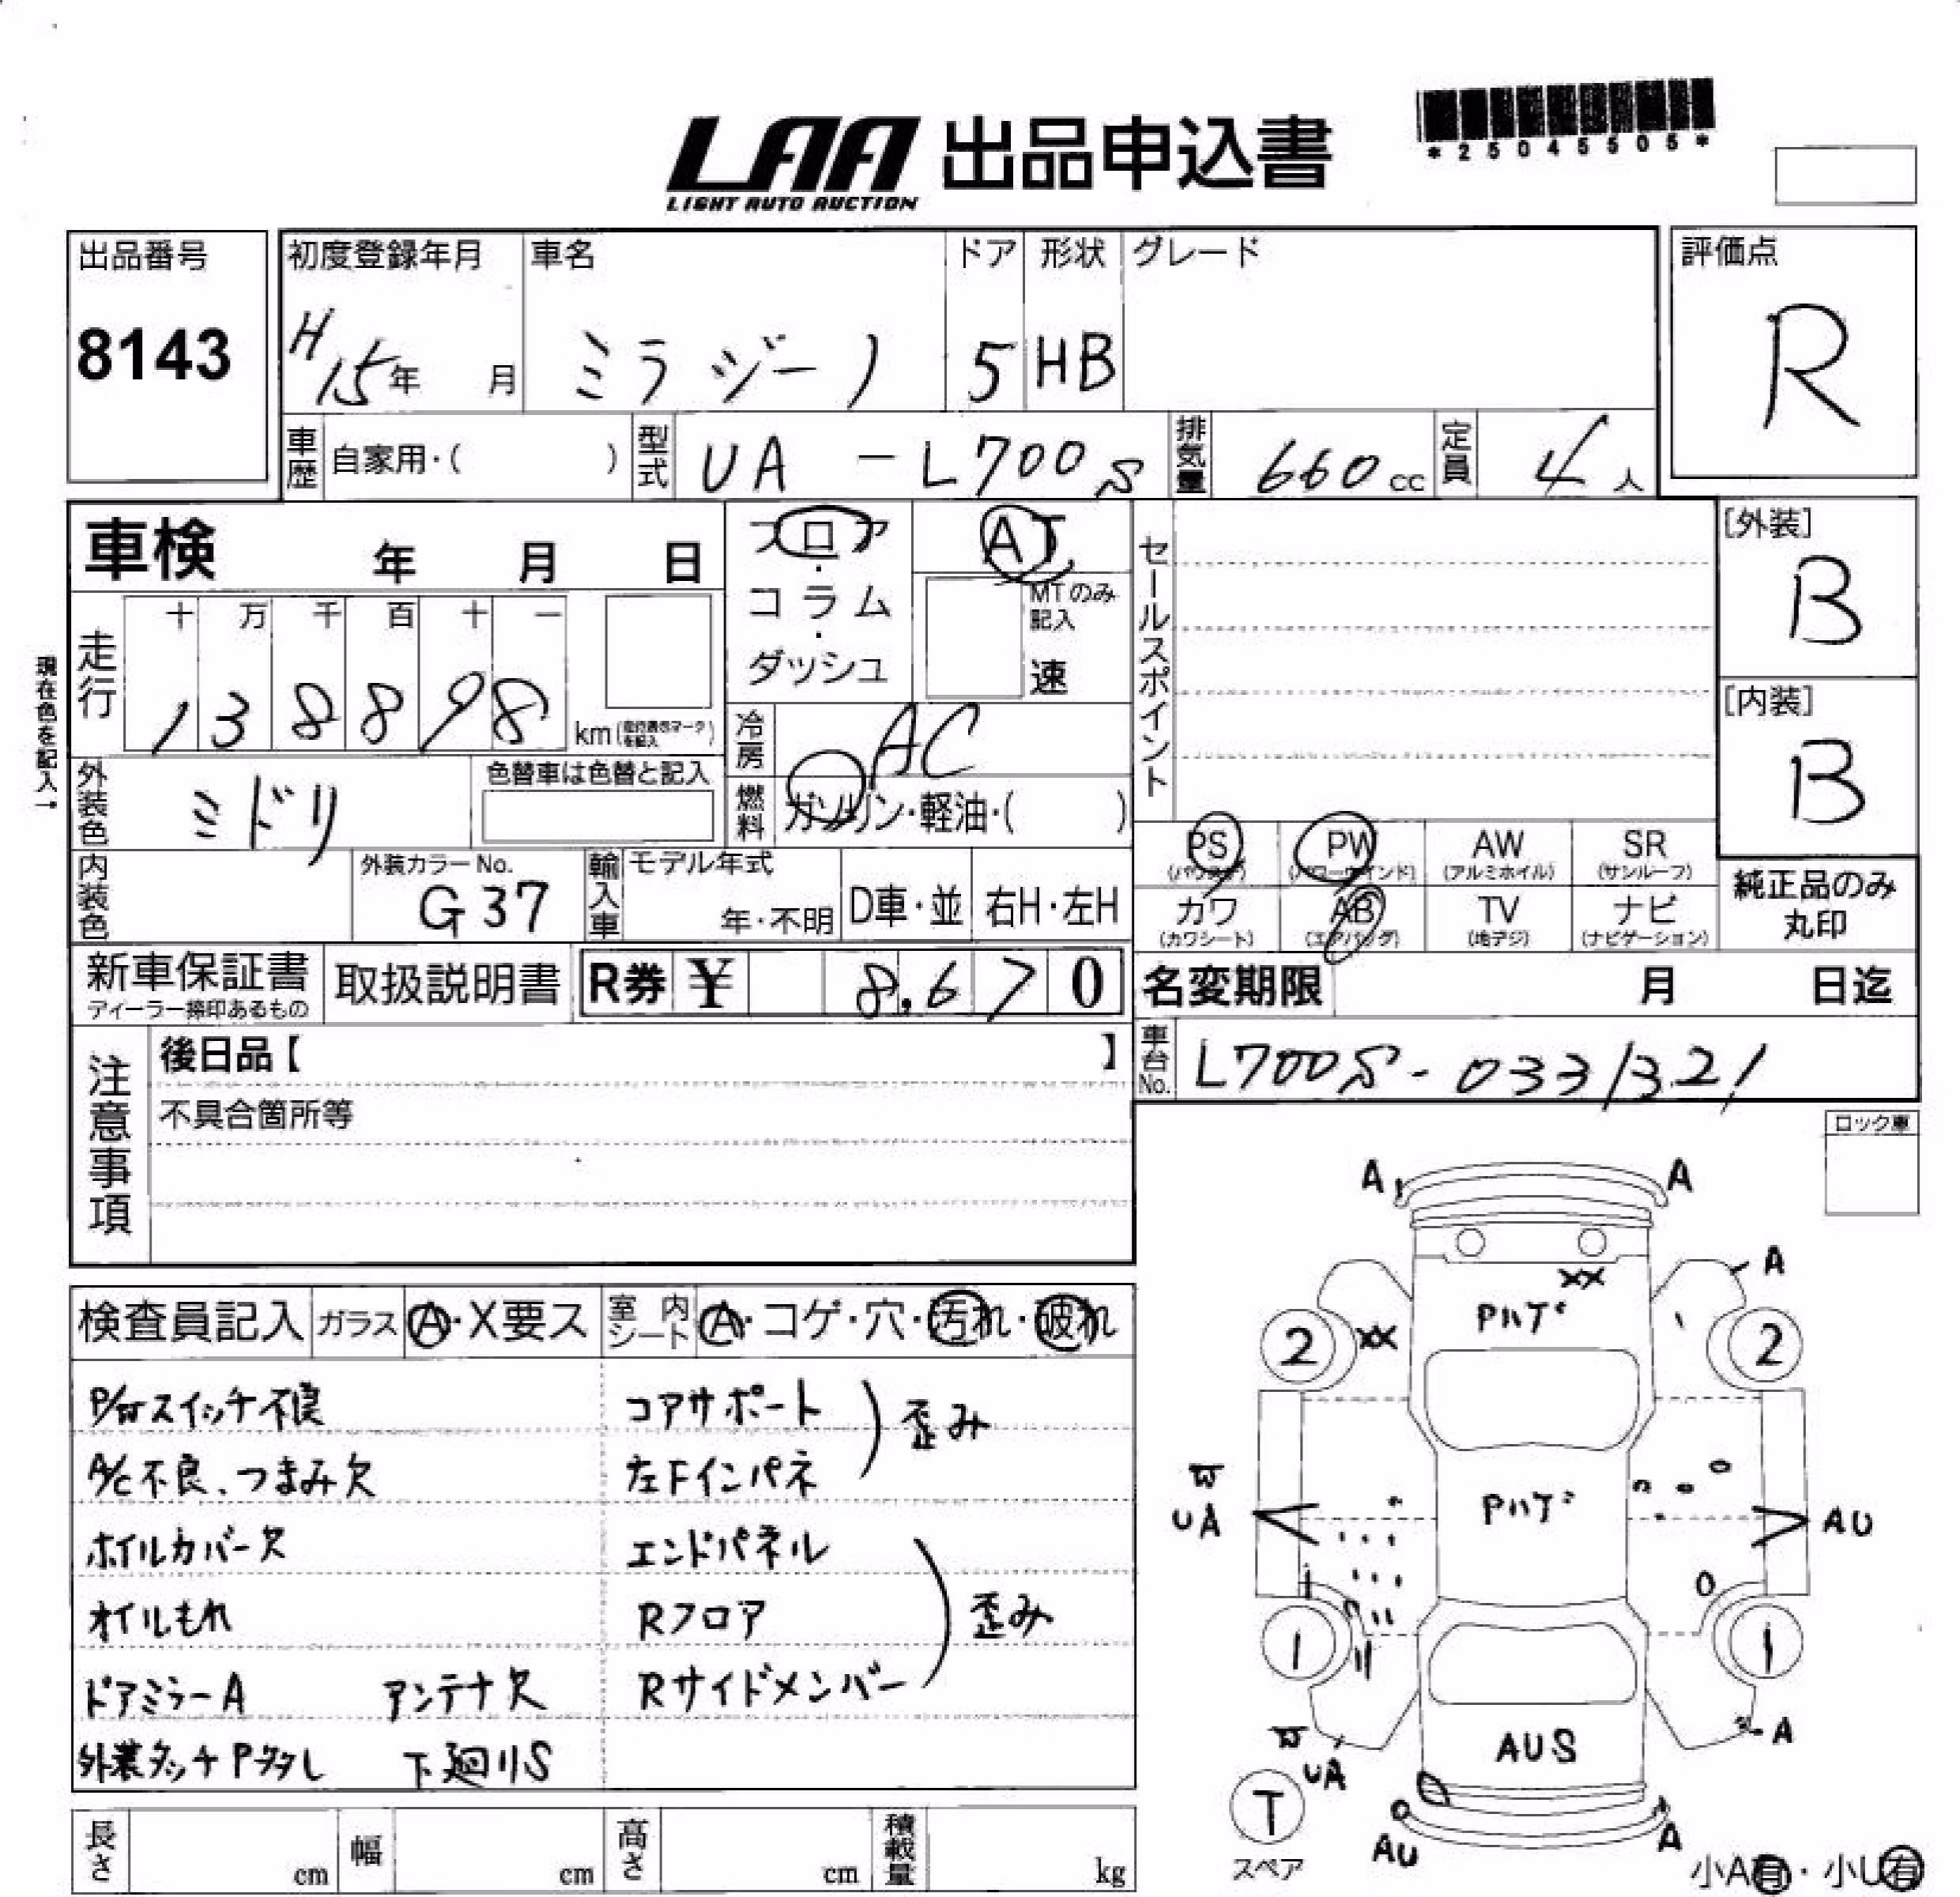 LAA 出品申込書
LIGHT AUTO AUCTION
*25045505*
出品番号
8143
初度登録年月
H15年 月
車名
ミラジーノ
ドア
5
形状
HB
グレード
評価点
R
車歴
自家用・( )
型式
UA-L700S
排気量
660cc
定員
4人
車検 年 月 日
フロア・コラム・ダッシュ
AT
MTのみ記入
速
セールスポイント
[外装]
B
[内装]
B
現在色を記入→
走行
十 万 千 百 十 一
1 3 8 8 9 8
km
冷房
AC
外装色
ミドリ
色替車は色替と記入
燃料
ガソリン・軽油・( )
PS
PW
(パワーウインド)
AW
(アルミホイル)
SR
(サンルーフ)
カワ
(カワシート)
AB
(エアバッグ)
TV
(地デジ)
ナビ
(ナビゲーション)
純正品のみ
丸印
内装色
外装カラーNo.
G37
輸入車
モデル年式
年・不明
D車・並
右H・左H
新車保証書
ディーラー捺印あるもの
取扱説明書
R券 ¥ 8,670
名変期限 月 日迄
注意事項
後日品【 】
不具合箇所等
車台No.
L700S-0331321
ロック車
検査員記入
ガラス
A・X要ス
室内シート
A・コゲ・穴・汚れ・破れ
P/Wスイッチ不良
A/C不良、つまみ欠
ホイルカバー欠
オイルもれ
ドアミラーA アンテナ欠
外装タッチPタタレ 下廻りS
コアサポート
左Fインパネ
歪み
エンドパネル
Rフロア
Rサイドメンバー
歪み
A A
A
XX
Pハゲ
2 XX 2
W
UA
Pハゲ
AU
1 1
W
UA
AUS
A
T
スペア
AU
A
小A有・小U有
長さ cm
幅 cm
高さ cm
積載量 kg